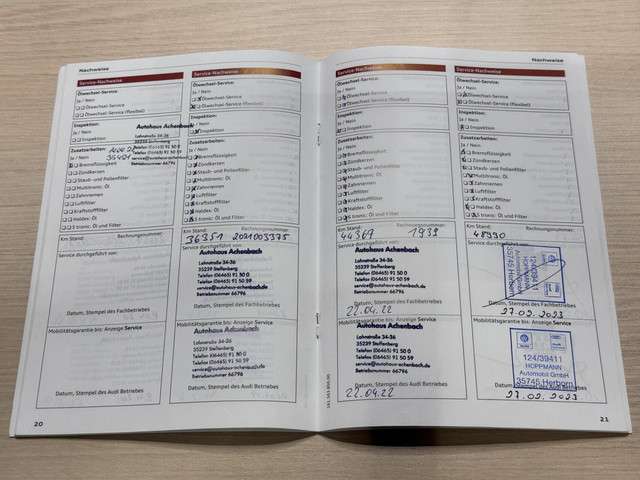 Nachweise
Service-Nachweise
Ölwechsel-Service:
Ja / Nein
Ölwechsel-Service
Ölwechsel-Service (flexibel)
Inspektion:
Ja / Nein
Inspektion
Zusatzarbeiten:
Ja / Nein
Bremsflüssigkeit
Zündkerzen
Staub- und Pollenfilter
Multitronic: Öl
Zahnriemen
Luftfilter
Kraftstofffilter
Haldex: Öl
S tronic: Öl und Filter
Autohaus Achenbach
Lahnstraße 34-36
35239 Steffenberg
Telefon (06465) 91 50 0
Telefax (06465) 91 50 59
service@autohaus-achenbach.de
Betriebsnummer 66796
Km Stand:
Rechnungsnummer:
Service durchgeführt von:
Datum, Stempel des Fachbetriebes
Mobilitätsgarantie bis: Anzeige Service
Datum, Stempel des Audi Betriebes
20
Service-Nachweise
Ölwechsel-Service:
Ja / Nein
Ölwechsel-Service
Ölwechsel-Service (flexibel)
Inspektion:
Ja / Nein
Inspektion
Zusatzarbeiten:
Ja / Nein
Bremsflüssigkeit
Zündkerzen
Staub- und Pollenfilter
Multitronic: Öl
Zahnriemen
Luftfilter
Kraftstofffilter
Haldex: Öl
S tronic: Öl und Filter
Km Stand:
Rechnungsnummer:
36351 2021003375
Service durchgeführt von:
Autohaus Achenbach
Lahnstraße 34-36
35239 Steffenberg
Telefon (06465) 91 50 0
Telefax (06465) 91 50 59
service@autohaus-achenbach.de
Betriebsnummer 66796
Datum, Stempel des Fachbetriebes
Mobilitätsgarantie bis: Anzeige Service
Autohaus Achenbach
Lahnstraße 34-36
35239 Steffenberg
Telefon (06465) 91 50 0
Telefax (06465) 91 50 59
service@autohaus-achenbach.de
Betriebsnummer 66796
Datum, Stempel des Audi Betriebes
Service-Nachweise
Ölwechsel-Service:
Ja / Nein
Ölwechsel-Service
Ölwechsel-Service (flexibel)
Inspektion:
Ja / Nein
Inspektion
Zusatzarbeiten:
Ja / Nein
Bremsflüssigkeit
Zündkerzen
Staub- und Pollenfilter
Multitronic: Öl
Zahnriemen
Luftfilter
Kraftstofffilter
Haldex: Öl
S tronic: Öl und Filter
Km Stand:
Rechnungsnummer:
44369 1938
Service durchgeführt von:
Autohaus Achenbach
Lahnstraße 34-36
35239 Steffenberg
Telefon (06465) 91 50 0
Telefax (06465) 91 50 59
service@autohaus-achenbach.de
Betriebsnummer 66796
Datum, Stempel des Fachbetriebes
22.04.22
Mobilitätsgarantie bis: Anzeige Service
Autohaus Achenbach
Lahnstraße 34-36
35239 Steffenberg
Telefon (06465) 91 50 0
Telefax (06465) 91 50 59
service@autohaus-achenbach.de
Betriebsnummer 66796
Datum, Stempel des Audi Betriebes
22.04.22
Nachweise
Service-Nachweise
Ölwechsel-Service:
Ja / Nein
Ölwechsel-Service
Ölwechsel-Service (flexibel)
Inspektion:
Ja / Nein
Inspektion
Zusatzarbeiten:
Ja / Nein
Bremsflüssigkeit
Zündkerzen
Staub- und Pollenfilter
Multitronic: Öl
Zahnriemen
Luftfilter
Kraftstofffilter
Haldex: Öl
S tronic: Öl und Filter
Km Stand:
Rechnungsnummer:
48990
Service durchgeführt von:
124/39411
HOPPMANN
Automobil GmbH
35745 Herborn
Datum, Stempel des Fachbetriebes
27.02.2023
Mobilitätsgarantie bis: Anzeige Service
124/39411
HOPPMANN
Automobil GmbH
35745 Herborn
Datum, Stempel des Audi Betriebes
27.02.2023
21